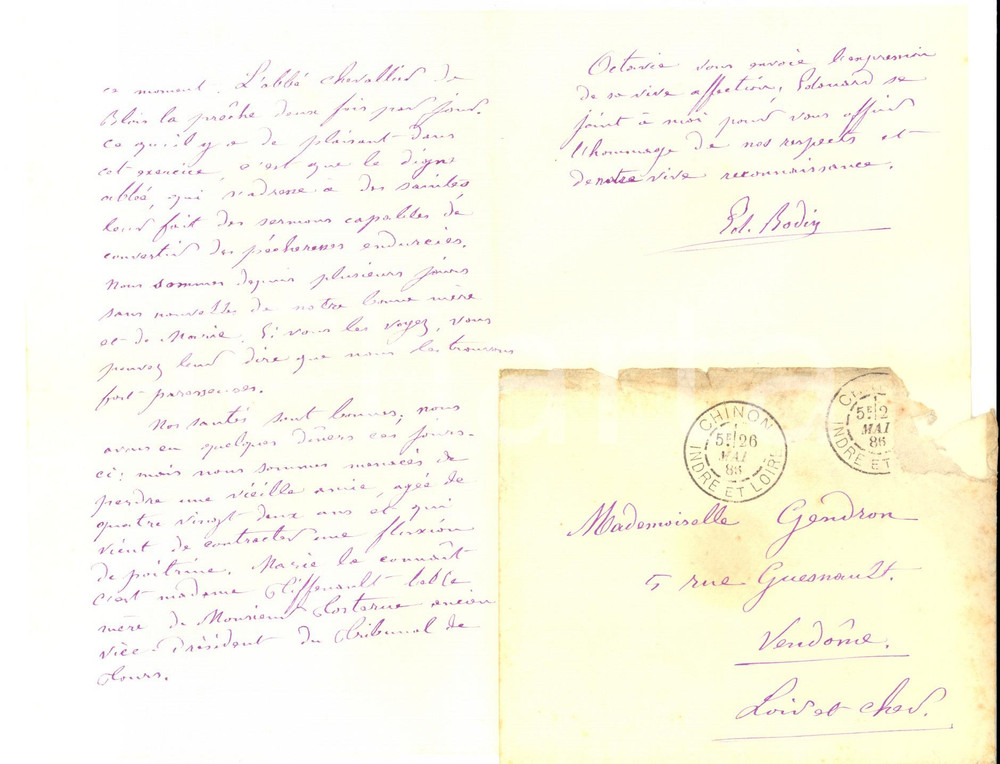 ce moment. L'abbé chevallier de
Blois la prêche deux fois par jour.
ce qu'il y a de plaisant dans
cet exercice, c'est que le digne
abbé, qui s'adresse à des saintes
leur fait des sermons capables de
convertir des pécheresses endurcies.
Nous sommes depuis plusieurs jours
sans nouvelles de notre bonne mère
et de Marie. Si vous les voyez, vous
pouvez leur dire que nous les trouvons
fort paresseuses.
Nos santés sont bonnes; nous
avons eu quelques dîners ces jours-
ci; mais nous sommes menacés de
perdre une vieille amie, agée de
quatre vingt deux ans et qui
vient de contracter une fluxion
de poitrine. Marie la connait
c'est madame
mère de Monsieur ancien
vice-Président du Tribunal de
Tours.
Octavie vous envoie l'expression
de sa vive affection, Edouard se
joint à moi pour vous offrir
l'hommage de nos respects et
de notre vive reconnaissance.
Ed. Bodin
CHINON
5E 26
MAI
86
INDRE ET LOIRE
5E 2
MAI
86
INDRE ET
Mademoiselle Gendron
5 rue Guesnault.
Vendôme.
Loir et Cher.